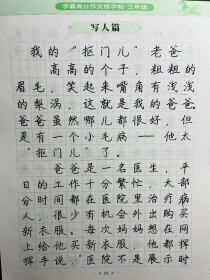 学霸高分作文练字帖 三年级
写人篇
我的“抠门儿”老爸
高高的个子，粗粗的
眉毛，笑起来嘴角有浅浅
的梨涡，这就是我的爸爸。
爸爸虽然哪儿都很好，但
是有一个小毛病——他太
“抠门儿”了。
爸爸是一名医生，平
日的工作十分繁忙，大部
分时间都在医院里治疗病
人，很少有机会外出购买
新衣服。每次妈妈想在网
上给他买新衣服，他都挥
挥手说：“医院不是展示时